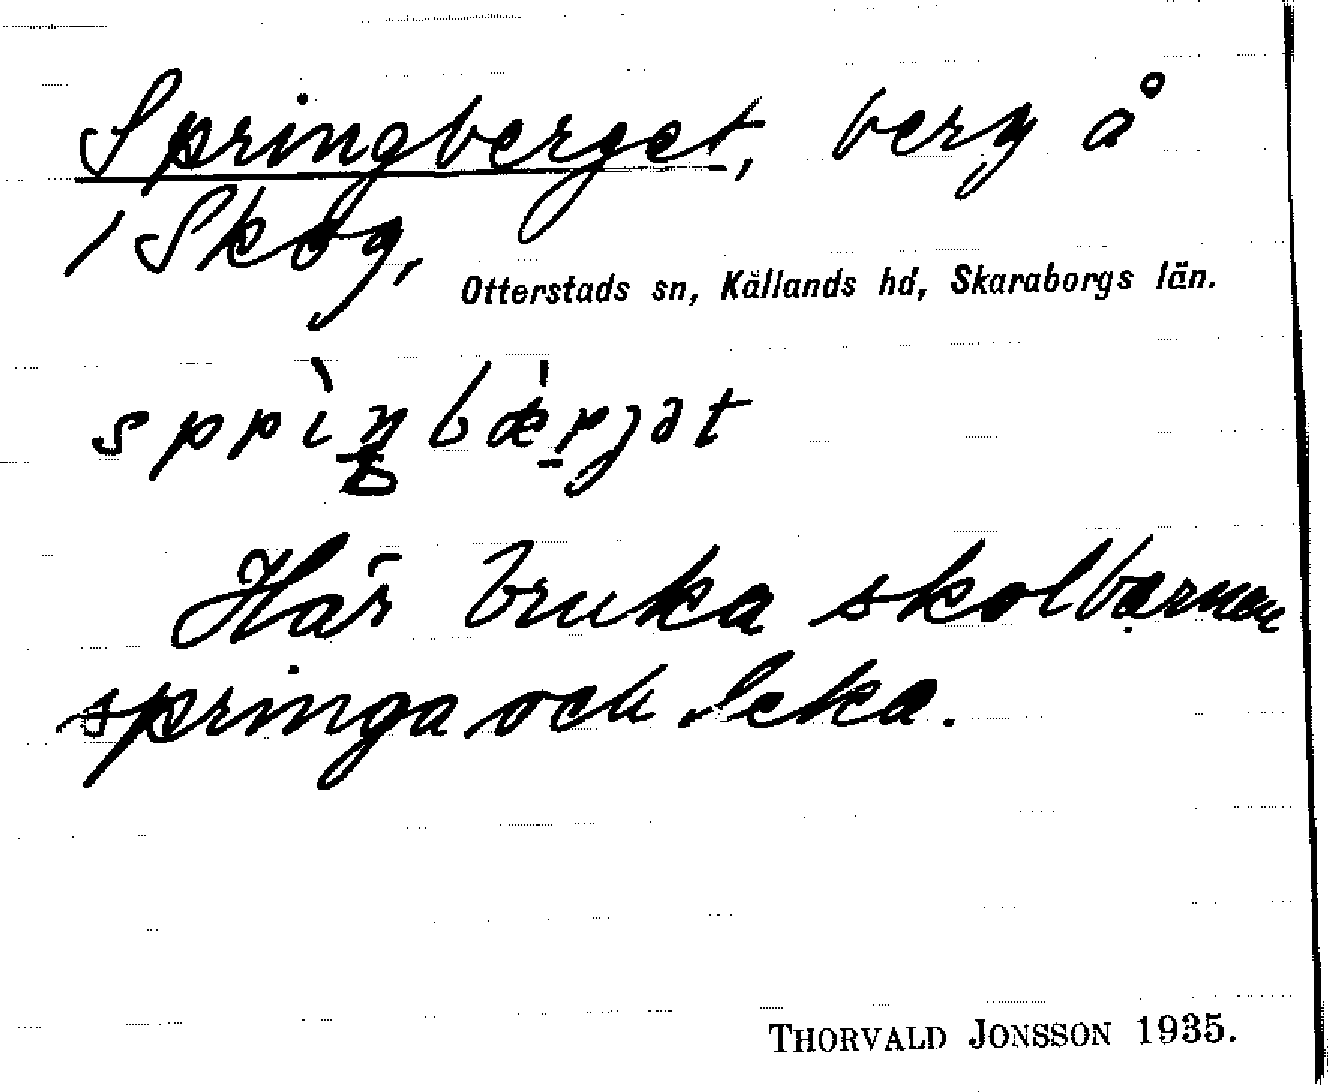 Springberget, berg å
/ Skog,
Otterstads sn, Kållands hd, Skaraborgs län.
Här bruka skolbarnen
springa och leka.
THORVALD JONSSON 1935.